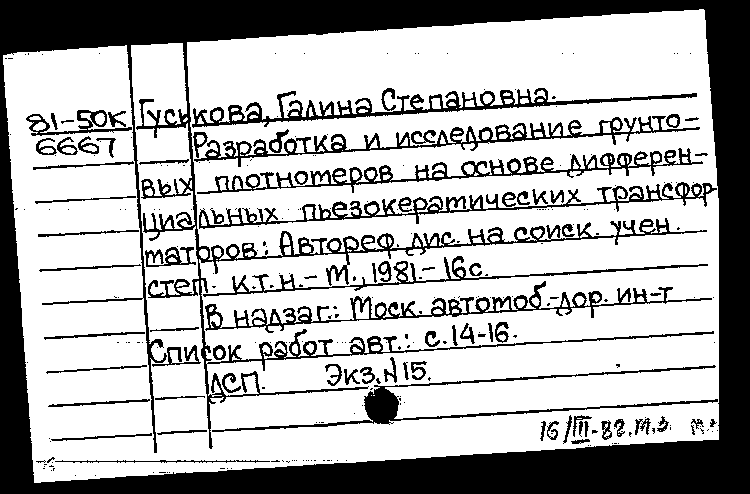 81-50К Гуськова, Галина Степановна.
6667 Разработка и исследование грунто-
вых плотномеров на основе дифферен-
циальных пьезокератических трансфор
маторов: Автореф. дис. на соиск. учен.
степ. к.т.н. - М., 1981. - 16с.
В надзаг.: Моск. автомоб.-дор. ин-т
Список работ авт.: с.14-16.
ДСП. Экз. №15.
16/III-82.